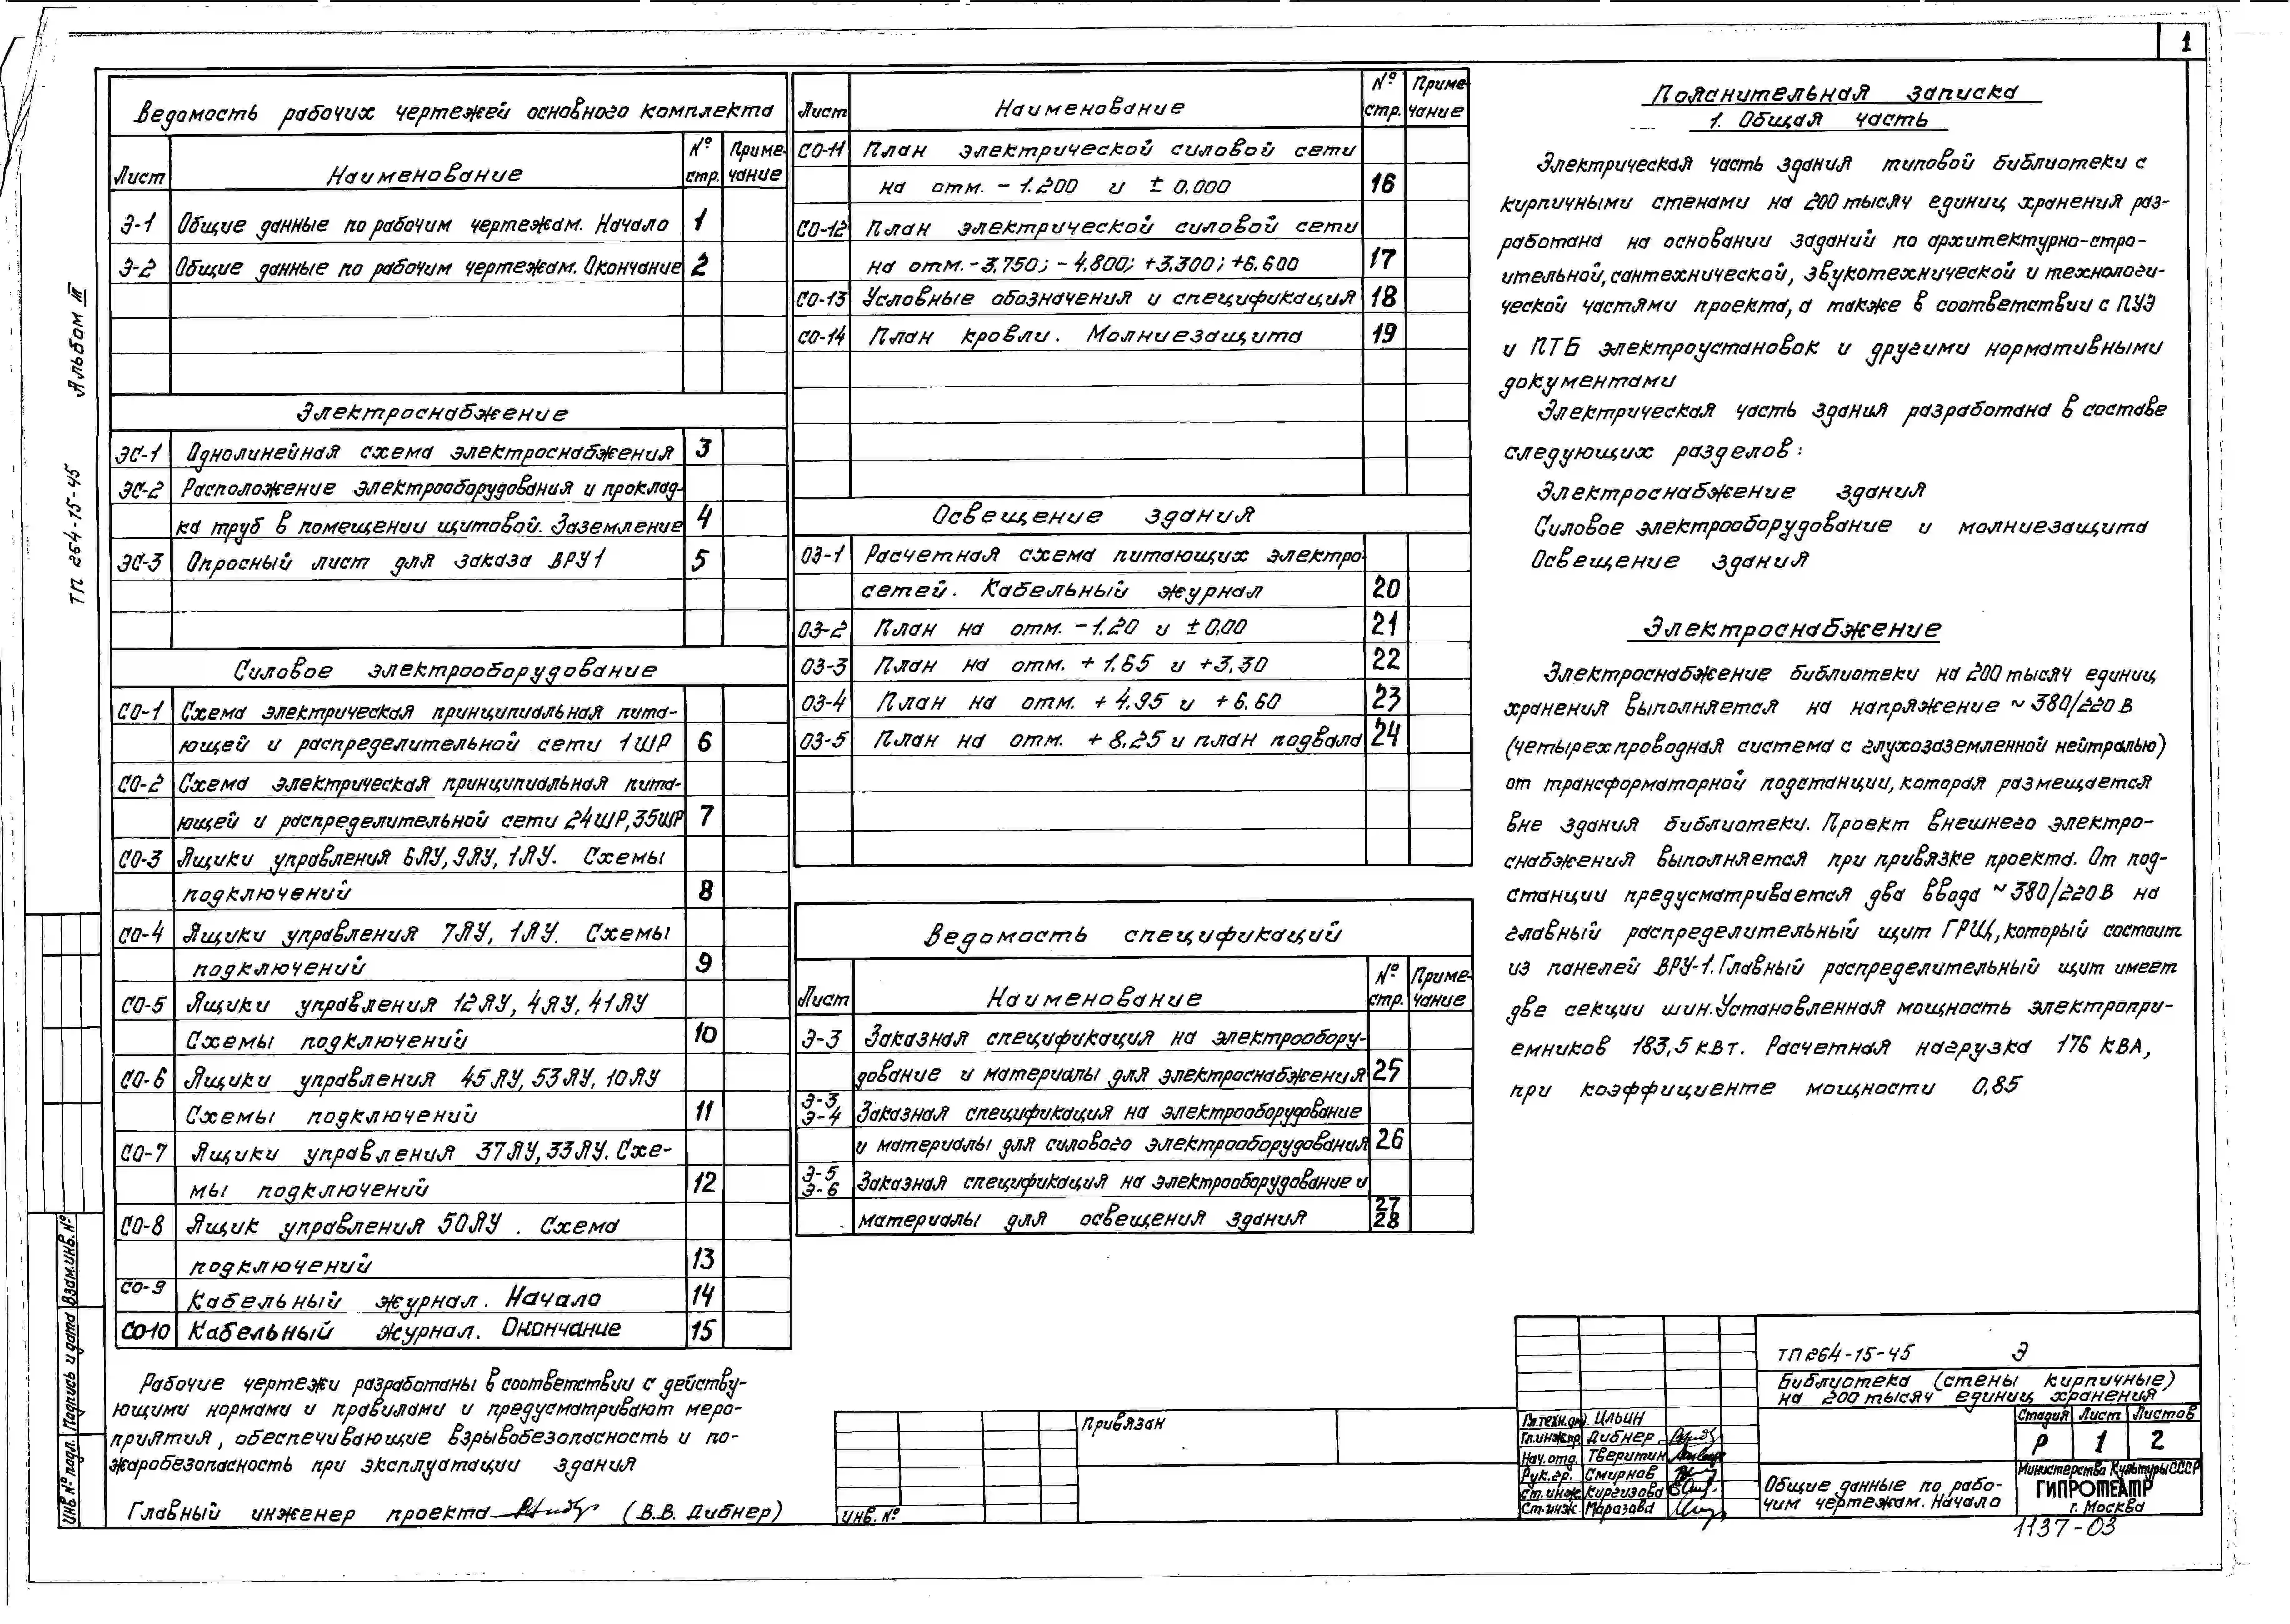 1
Альбом III
ТП 264-15-45
Ведомость рабочих чертежей основного комплекта
Лист Наименование № стр. Приме-чание
Э-1 Общие данные по рабочим чертежам. Начало 1
Э-2 Общие данные по рабочим чертежам. Окончание 2
Электроснабжение
ЭС-1 Однолинейная схема электроснабжения 3
ЭС-2 Расположение электрооборудования и проклад-
ка труб в помещении щитовой. Заземление 4
ЭС-3 Опросный лист для заказа ВРУ1 5
Силовое электрооборудование
СО-1 Схема электрическая принципиальная пита-
ющей и распределительной сети 1ШР 6
СО-2 Схема электрическая принципиальная пита-
ющей и распределительной сети 24ШР, 35ШР 7
СО-3 Ящики управления 6ЯУ, 9ЯУ, 1ЯУ. Схемы
подключений 8
СО-4 Ящики управления 7ЯУ, 1ЯУ. Схемы
подключений 9
СО-5 Ящики управления 12ЯУ, 4ЯУ, 41ЯУ
Схемы подключений 10
СО-6 Ящики управления 45ЯУ, 53ЯУ, 10ЯУ
Схемы подключений 11
СО-7 Ящики управления 37ЯУ, 33ЯУ. Схе-
мы подключений 12
СО-8 Ящик управления 50ЯУ. Схема
подключений 13
СО-9 Кабельный журнал. Начало 14
СО-10 Кабельный журнал. Окончание 15
Рабочие чертежи разработаны в соответствии с действу-
ющими нормами и правилами и предусматривают меро-
приятия, обеспечивающие взрывобезопасность и по-
жаробезопасность при эксплуатации здания
Главный инженер проекта (В.В. Дибнер)
Лист Наименование № стр. Приме-чание
СО-11 План электрической силовой сети
на отм. - 1.200 и ± 0.000 16
СО-12 План электрической силовой сети
на отм. - 3.750; - 4.800; +3.300; +6.600 17
СО-13 Условные обозначения и спецификация 18
СО-14 План кровли. Молниезащита 19
Освещение здания
ОЗ-1 Расчетная схема питающих электро-
сетей. Кабельный журнал 20
ОЗ-2 План на отм. -1.20 и ± 0.00 21
ОЗ-3 План на отм. + 1.65 и +3.30 22
ОЗ-4 План на отм. + 4.95 и + 6.60 23
ОЗ-5 План на отм. + 8.25 и план подвала 24
Ведомость спецификаций
Лист Наименование № стр. Приме-чание
Э-3 Заказная спецификация на электрообору-
дование и материалы для электроснабжения 25
Э-3 Э-4 Заказная спецификация на электрооборудование
и материалы для силового электрооборудования 26
Э-5 Э-6 Заказная спецификация на электрооборудование и
материалы для освещения здания 27 28
Пояснительная записка
1. Общая часть
Электрическая часть здания типовой библиотеки с
кирпичными стенами на 200 тысяч единиц хранения раз-
работана на основании заданий по архитектурно-стро-
ительной, сантехнической, звукотехнической и технологи-
ческой частями проекта, а также в соответствии с ПУЭ
и ПТБ электроустановок и другими нормативными
документами
Электрическая часть здания разработана в составе
следующих разделов:
Электроснабжение здания
Силовое электрооборудование и молниезащита
Освещение здания
Электроснабжение
Электроснабжение библиотеки на 200 тысяч единиц
хранения выполняется на напряжение ~ 380/220 В
(четырехпроводная система с глухозаземленной нейтралью)
от трансформаторной подстанции, которая размещается
вне здания библиотеки. Проект внешнего электро-
снабжения выполняется при привязке проекта. От под-
станции предусматривается два ввода ~ 380/220 В на
главный распределительный щит ГРЩ, который состоит
из панелей ВРУ-1. Главный распределительный щит имеет
две секции шин. Установленная мощность электропри-
емников 183,5 кВт. Расчетная нагрузка 176 кВА,
при коэффициенте мощности 0,85
Привязан
Инв. №
ТП 264-15-45 Э
Библиотека (стены кирпичные)
на 200 тысяч единиц хранения
Гл.техн.отд. Ильин
Гл.инж.пр. Дибнер
Нач. отд. Тверитин
Рук. гр. Смирнов
Ст. инж. Киргизова
Ст. инж. Маразова
Стадия Лист Листов
Р 1 2
Общие данные по рабо-
чим чертежам. Начало
Министерство Культуры СССР
ГИПРОТЕАТР
г. Москва
1137-03
Взам.инв.№
Подпись и дата
Инв.№ подл.